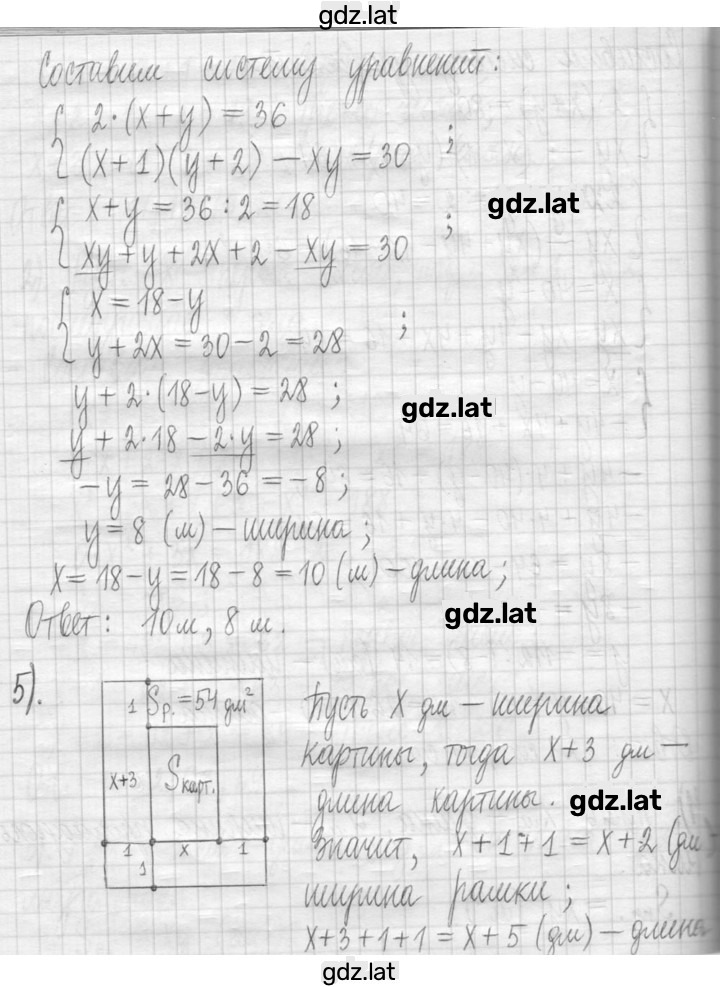 gdz.lat
Составим систему уравнений:
{ 2·(x+y) = 36
{ (x+1)(y+2) – xy = 30 ;
{ x+y = 36 : 2 = 18
gdz.lat
{ xy + y + 2x + 2 – xy = 30 ;
{ x = 18 – y
{ y + 2x = 30 – 2 = 28 ;
y + 2·(18–y) = 28 ;
gdz.lat
y + 2·18 – 2·y = 28 ;
–y = 28 – 36 = –8 ;
y = 8 (м) – ширина ;
x = 18 – y = 18 – 8 = 10 (м) – длина ;
gdz.lat
Ответ: 10 м, 8 м.
5).
1 Sр. = 54 дм²
x+3 Sкарт.
1 x 1
1
Пусть x дм – ширина
картины, тогда x+3 дм –
длина картины.
gdz.lat
Значит, x+1+1 = x+2 (дм –
ширина рамки ;
x+3+1+1 = x+5 (дм) – длина
gdz.lat